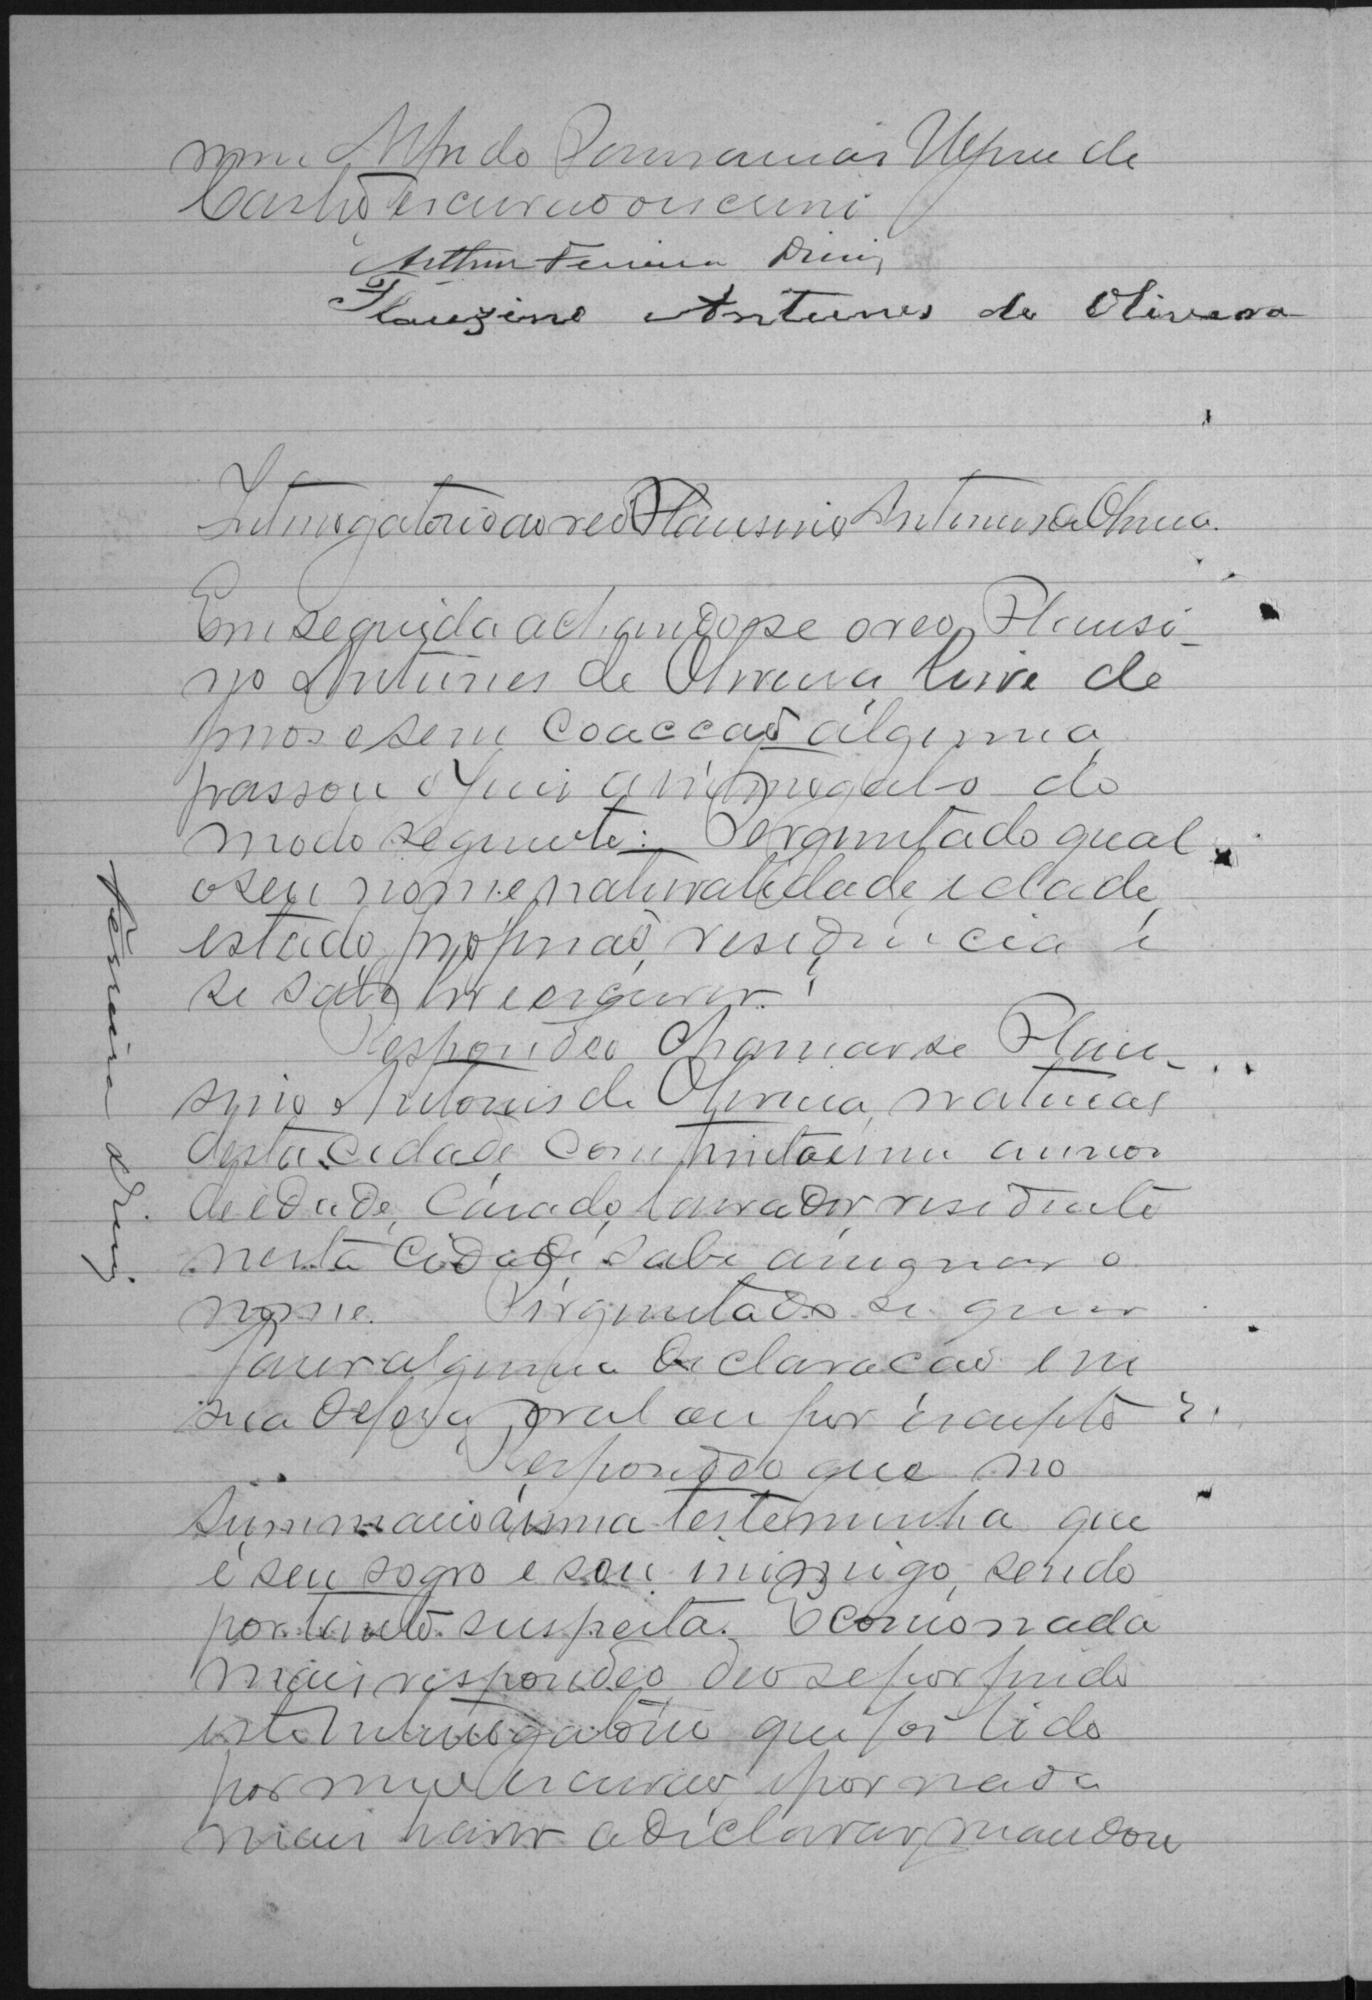 Alfredo de
Castro escrivão o escrevi
Arthur Ferreira Diniz
Flauzino Antunes de Oliveira
Interrogatorio ao reo Flausino Antunes de Olivª.
Em seguida achando se o reo Flausi-
no Antunes de Oliveira livre de
e sem coacção alguma
passou o Juiz a interrogal-o do
modo seguinte: Perguntado qual
o seu nome naturalidade, idade,
estado, profissão, residencia e
se sabe ler e escrever?
Respondeo chamar se Flau-
sino Antonis de Oliveira, natural
desta cidade com trinta e um annos
de edade, casado, lavrador, residente
nesta cidade sabe assignar o
nome. Perguntado se quer
fazer alguma declaracão em
sua defesa oral ou por escripto?
Respondeo que no
summario á uma testeminha que
é seu sogro e seu inimigo, sendo
por tanto suspeita. E como nada
mais respondeo deo se por findo
este Interrogatorio que foi lido
por mim escrivão, e por nada
mais haver a declarar, mandou
Ferreira Diniz